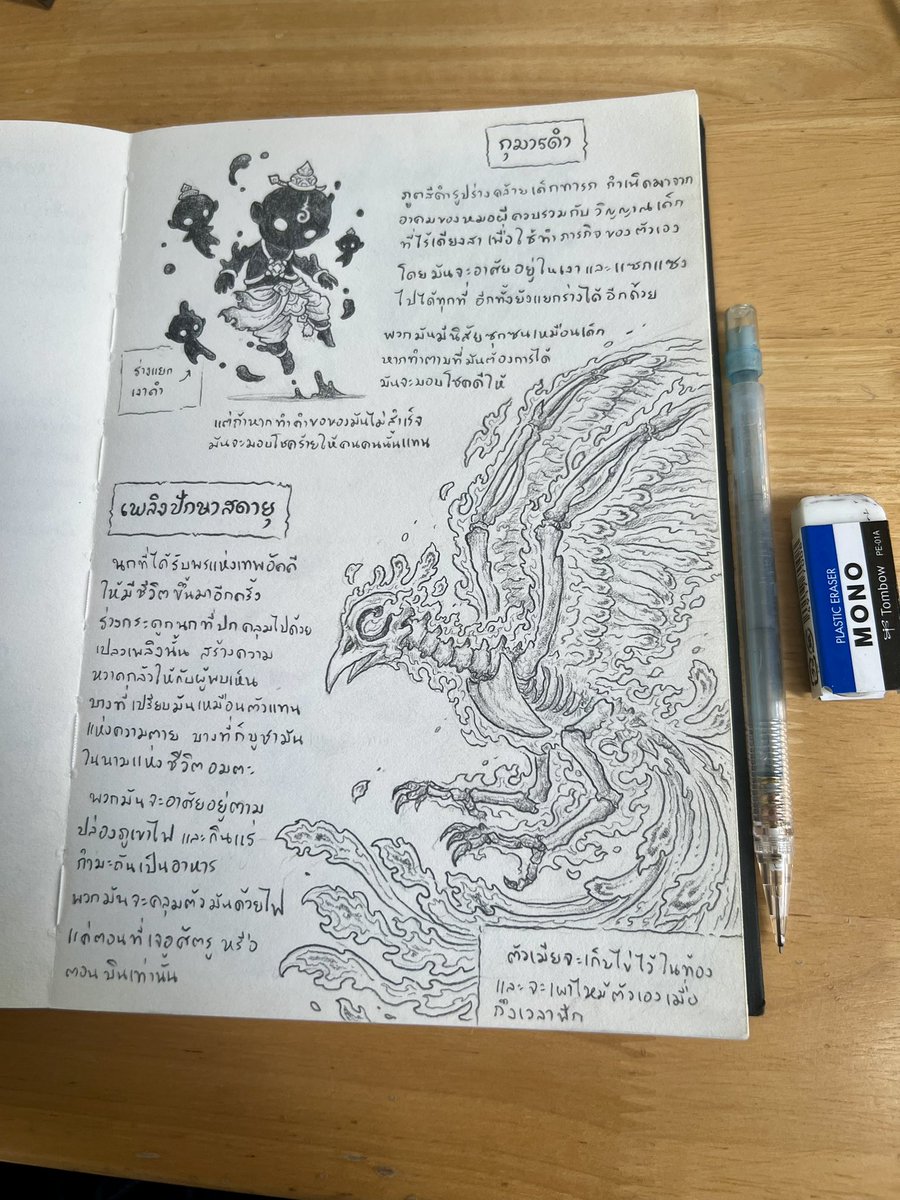 กุมารดำ
ภูตสีดำรูปร่างคล้ายเด็กทารก กำเนิดมาจาก
อาคมของหมอผีควบรวมกับ วิญญาณเด็ก
ที่ไร้เดียงสา เพื่อใช้ทำภารกิจของตัวเอง
โดยมันจะอาศัยอยู่ในเงา และแซกแซง
ไปได้ทุกที่ อีกทั้งยังแยกร่างได้อีกด้วย
พวกมันมีนิสัยซุกซนเหมือนเด็ก
หากทำตามที่มันต้องการได้
มันจะมอบโชคดีให้
ร่างแยก
เงาดำ
แต่ถ้าหากทำคำขอของมันไม่สำเร็จ
มันจะมอบโชคร้ายให้คนคนนั้นแทน
เพลิงปักษาสดายุ
นกที่ได้รับพรแห่งเทพอัคคี
ให้มีชีวิตขึ้นมาอีกครั้ง
ร่างกระดูกนกที่ปกคลุมไปด้วย
เปลวเพลิงนั้น สร้างความ
หวาดกลัวให้กับผู้พบเห็น
บางที่เปรียบมันเหมือนตัวแทน
แห่งความตาย บางที่ก็บูชามัน
ในนามแห่งชีวิตอมตะ
พวกมันจะอาศัยอยู่ตาม
ปล่องภูเขาไฟ และกินแร่
กำมะถันเป็นอาหาร
พวกมันจะคลุมตัวมันด้วยไฟ
แค่ตอนที่เจอศัตรู หรือ
ตอนบินเท่านั้น
ตัวเมียจะเก็บไข่ไว้ในท้อง
และจะเผาไหม้ตัวเองเมื่อ
ถึงเวลาฟัก
PLASTIC ERASER
MONO
Tombow
PE-01A